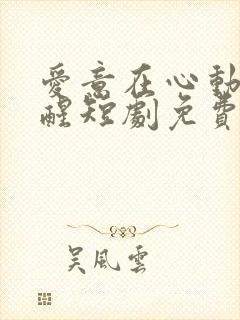 愛意在心動
醒短劇免費
吳風雲